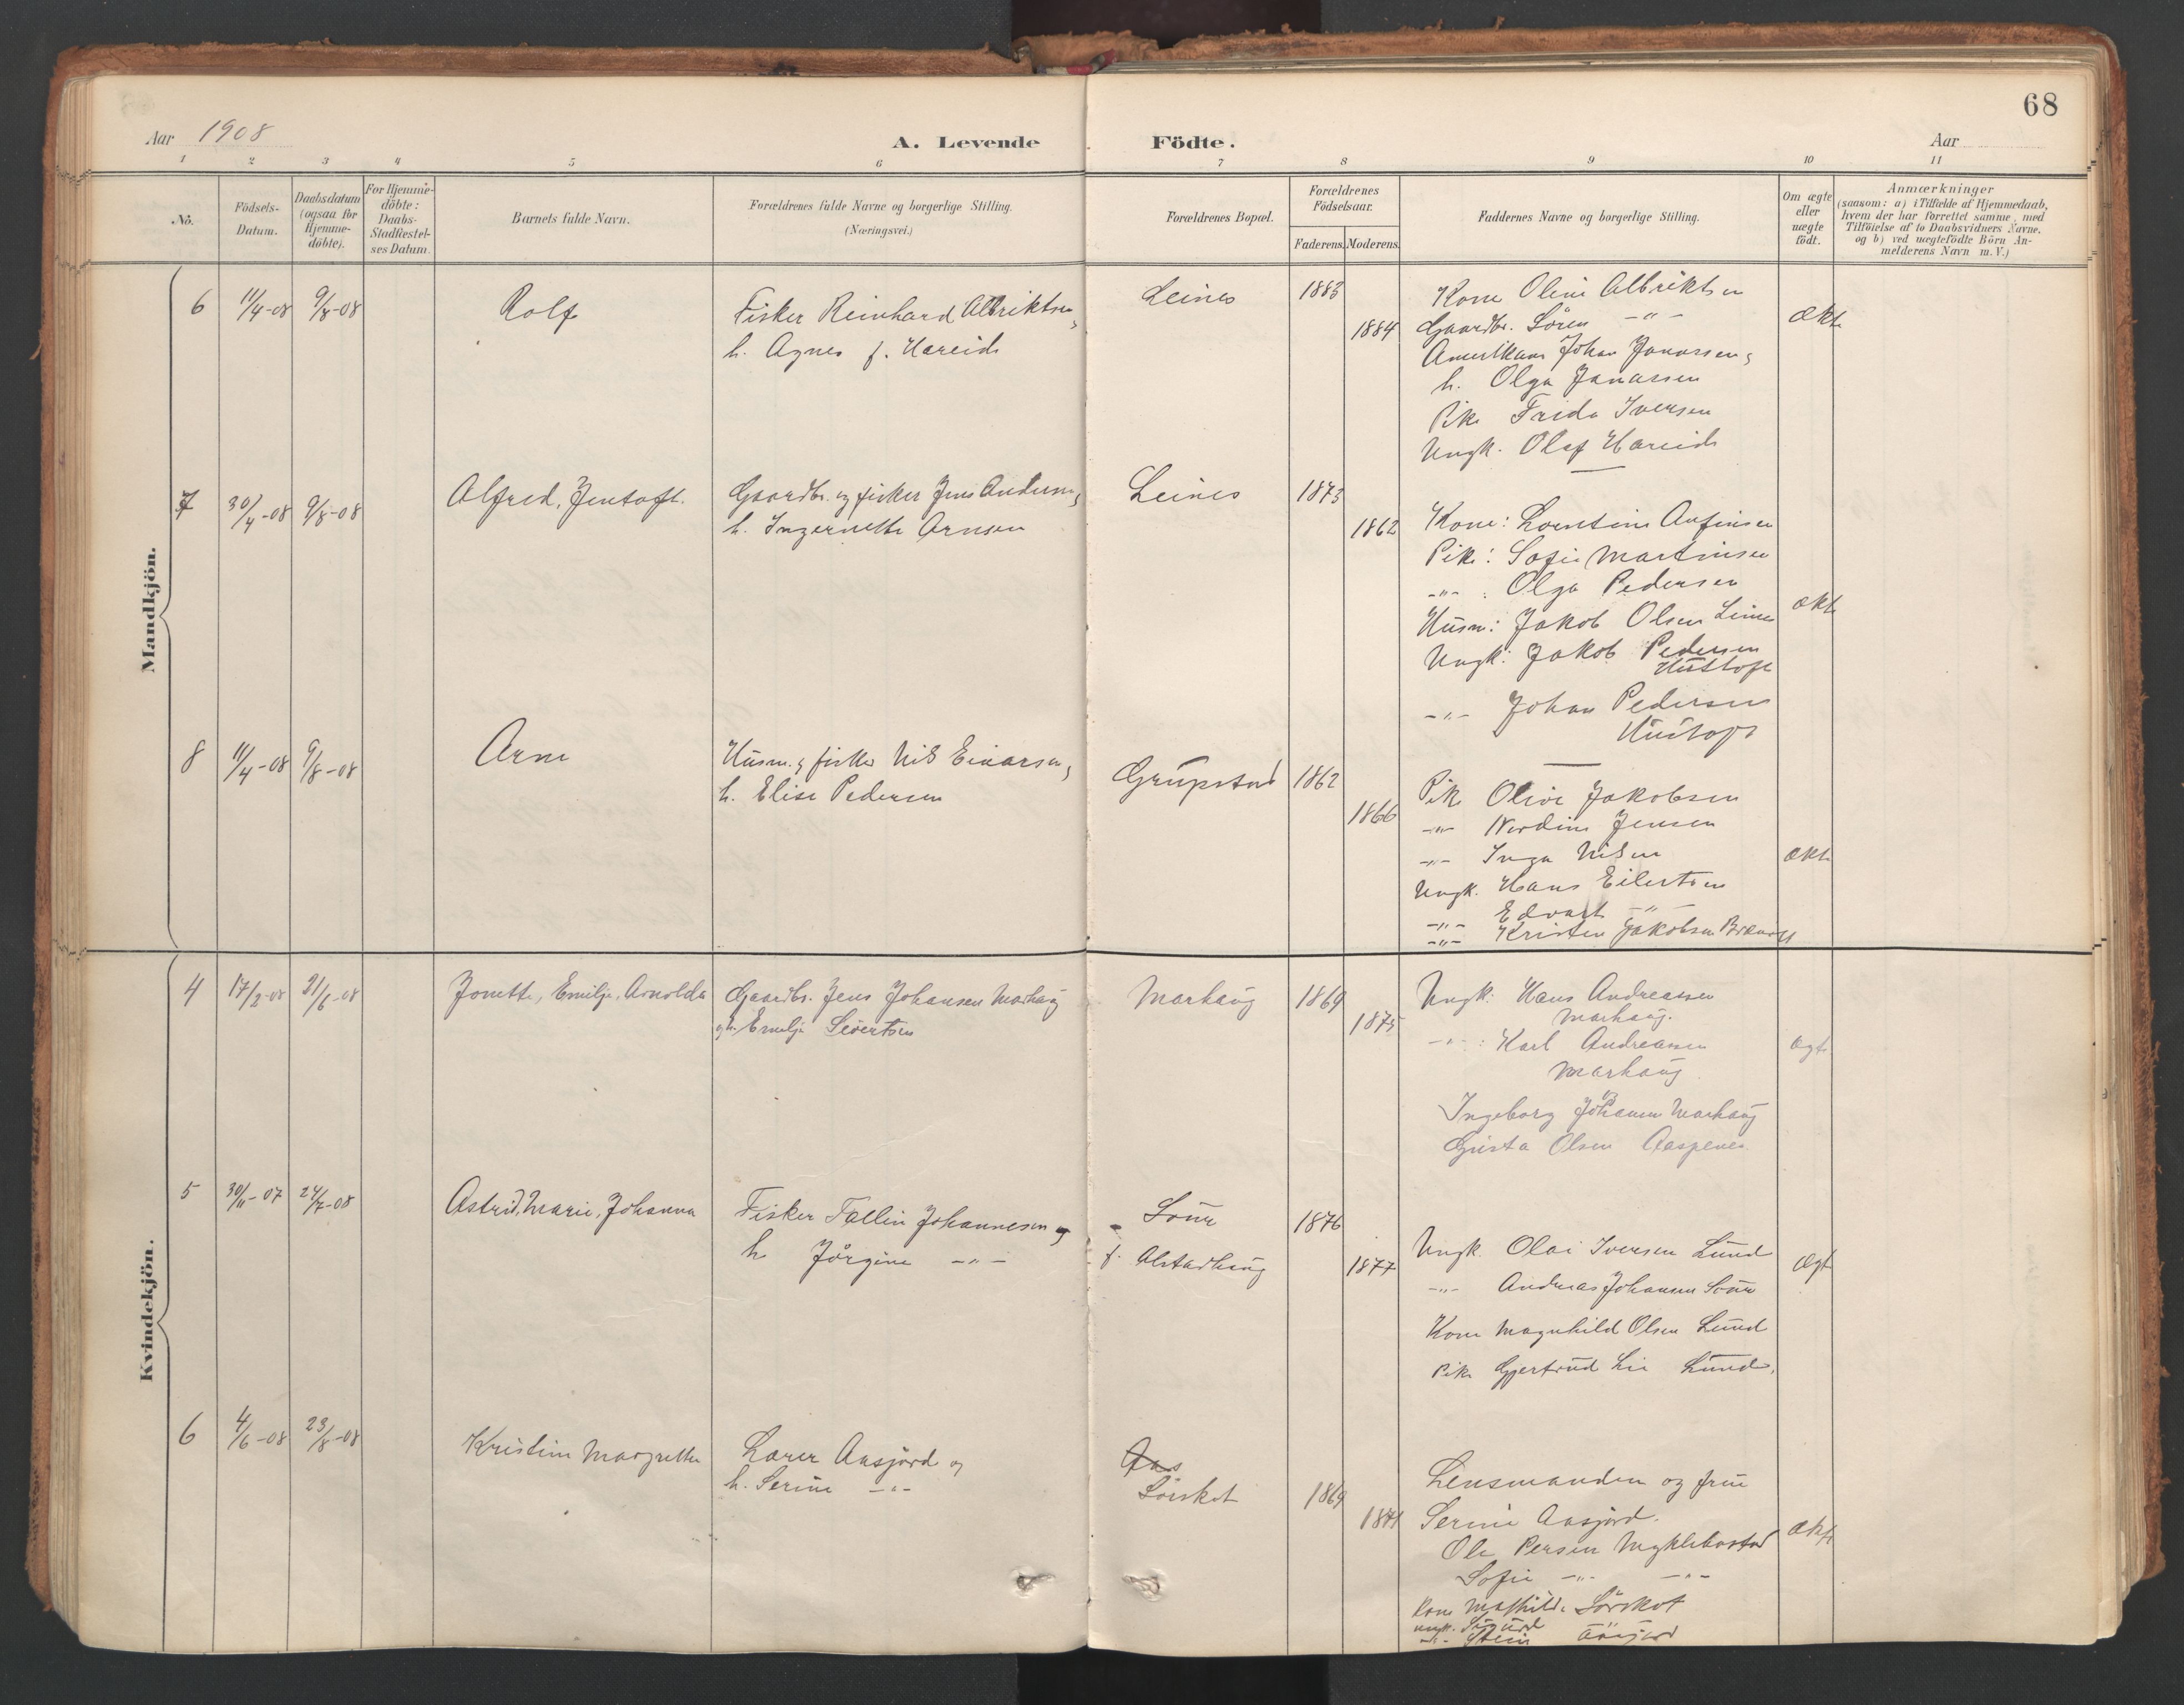 68
Aar 1908
A. Levende Födte.
Aar
1 2 3 4 5 6 7 8 9 10 11
No.
Födsels-
Datum.
Daabsdatum
(ogsaa for
Hjemme-
döbte).
For Hjemme-
döbte:
Daabs-
Stadfæstel-
ses Datum.
Barnets fulde Navn.
Forældrenes fulde Navne og borgerlige Stilling.
(Næringsvei.)
Forældrenes Bopæl.
Forældrenes
Födselsaar.
Faderens. Moderens.
Faddernes Navne og borgerlige Stilling.
Om ægte
eller
uægte
födt.
Anmærkninger
(saasom: a) i Tilfælde af Hjemmedaab,
hvem der har forrettet samme, med
Tilföielse af to Daabsvidners Navne,
og b) ved uægtefödte Börn An-
melderens Navn m. V.)
Mandkjön.
6 11/4-08 9/8-08 Rolf
Fisker Reinhard Albriktsen,
h. Agnes f. Hareide
Leines 1883
1884
Kone Oline Albriktsen
Gaardbr. Sören -"-
Amerikans Johan Janassen,
h. Olga Janassen
Pike Frida Iversen
Ungk. Olaf Hareide
ækte
7 30/4-08 9/8-08 Alfred, Jentoft.
Gaardbr. og fisker Jens Andersen,
h. Ingernette Arnsen
Leines 1873
1862
Kone: Lorentine Anfinsen
Pike: Sofie Martinsen
-"- : Olga Pedersen
Husm: Jakob Olsen Leines
Ungk: Jakob Pedersen
Hustoft
-"- Johan Pedersen
Hustoft
ækte
8 11/4-08 9/8-08 Arne
Husm. & fisker Nils Einarsen,
h. Elise Pedersen
Grupstad 1862
1866
Pike Olive Jakobsen
-"- Nordine Jensen
-"- Inga Nilsen
Ungk. Hans Eilertsen
-"- Edvart -"-
-"- Kristen Jakobsen
ækte
Kvindekjön.
4 17/2-08 21/6-08 Jonette, Emilje, Arnolda
Gaardbr. Jens Johansen Marhaug
og h. Emilje Sivertsen
Marhaug 1869
1875
Ungk: Hans Andreassen
Marhaug.
-"- : Karl Andreassen
Marhaug.
Ingeborg Johansen Marhaug
Gusta Olsen Aaspenes
ægte
5 30/11-07 24/7-08 Astrid, Marie, Johanna
Fisker Tollin Johannesen og
h. Jörgine -"-
Sour
f. Alstadhaug
1876
1877
Ungk. Olai Iversen Lund
-"- Andreas Johansen Sour
Kone Magnhild Olsen Lund
Pike Gjertrud Lie Lund.
ægt
6 4/6-08 23/8-08 Kristine Margrethe
Lærer Aasjord og
h. Serine -"-
Aas
Sörskot 1869
1871
Lensmanden og frue
Serine Aasjord.
Ole Persen Myklebostad
Sofie -"- -"-
Kone Mathilde Sörskot
Ungk. Sigurd
-"- Stein Aasjord
ækte